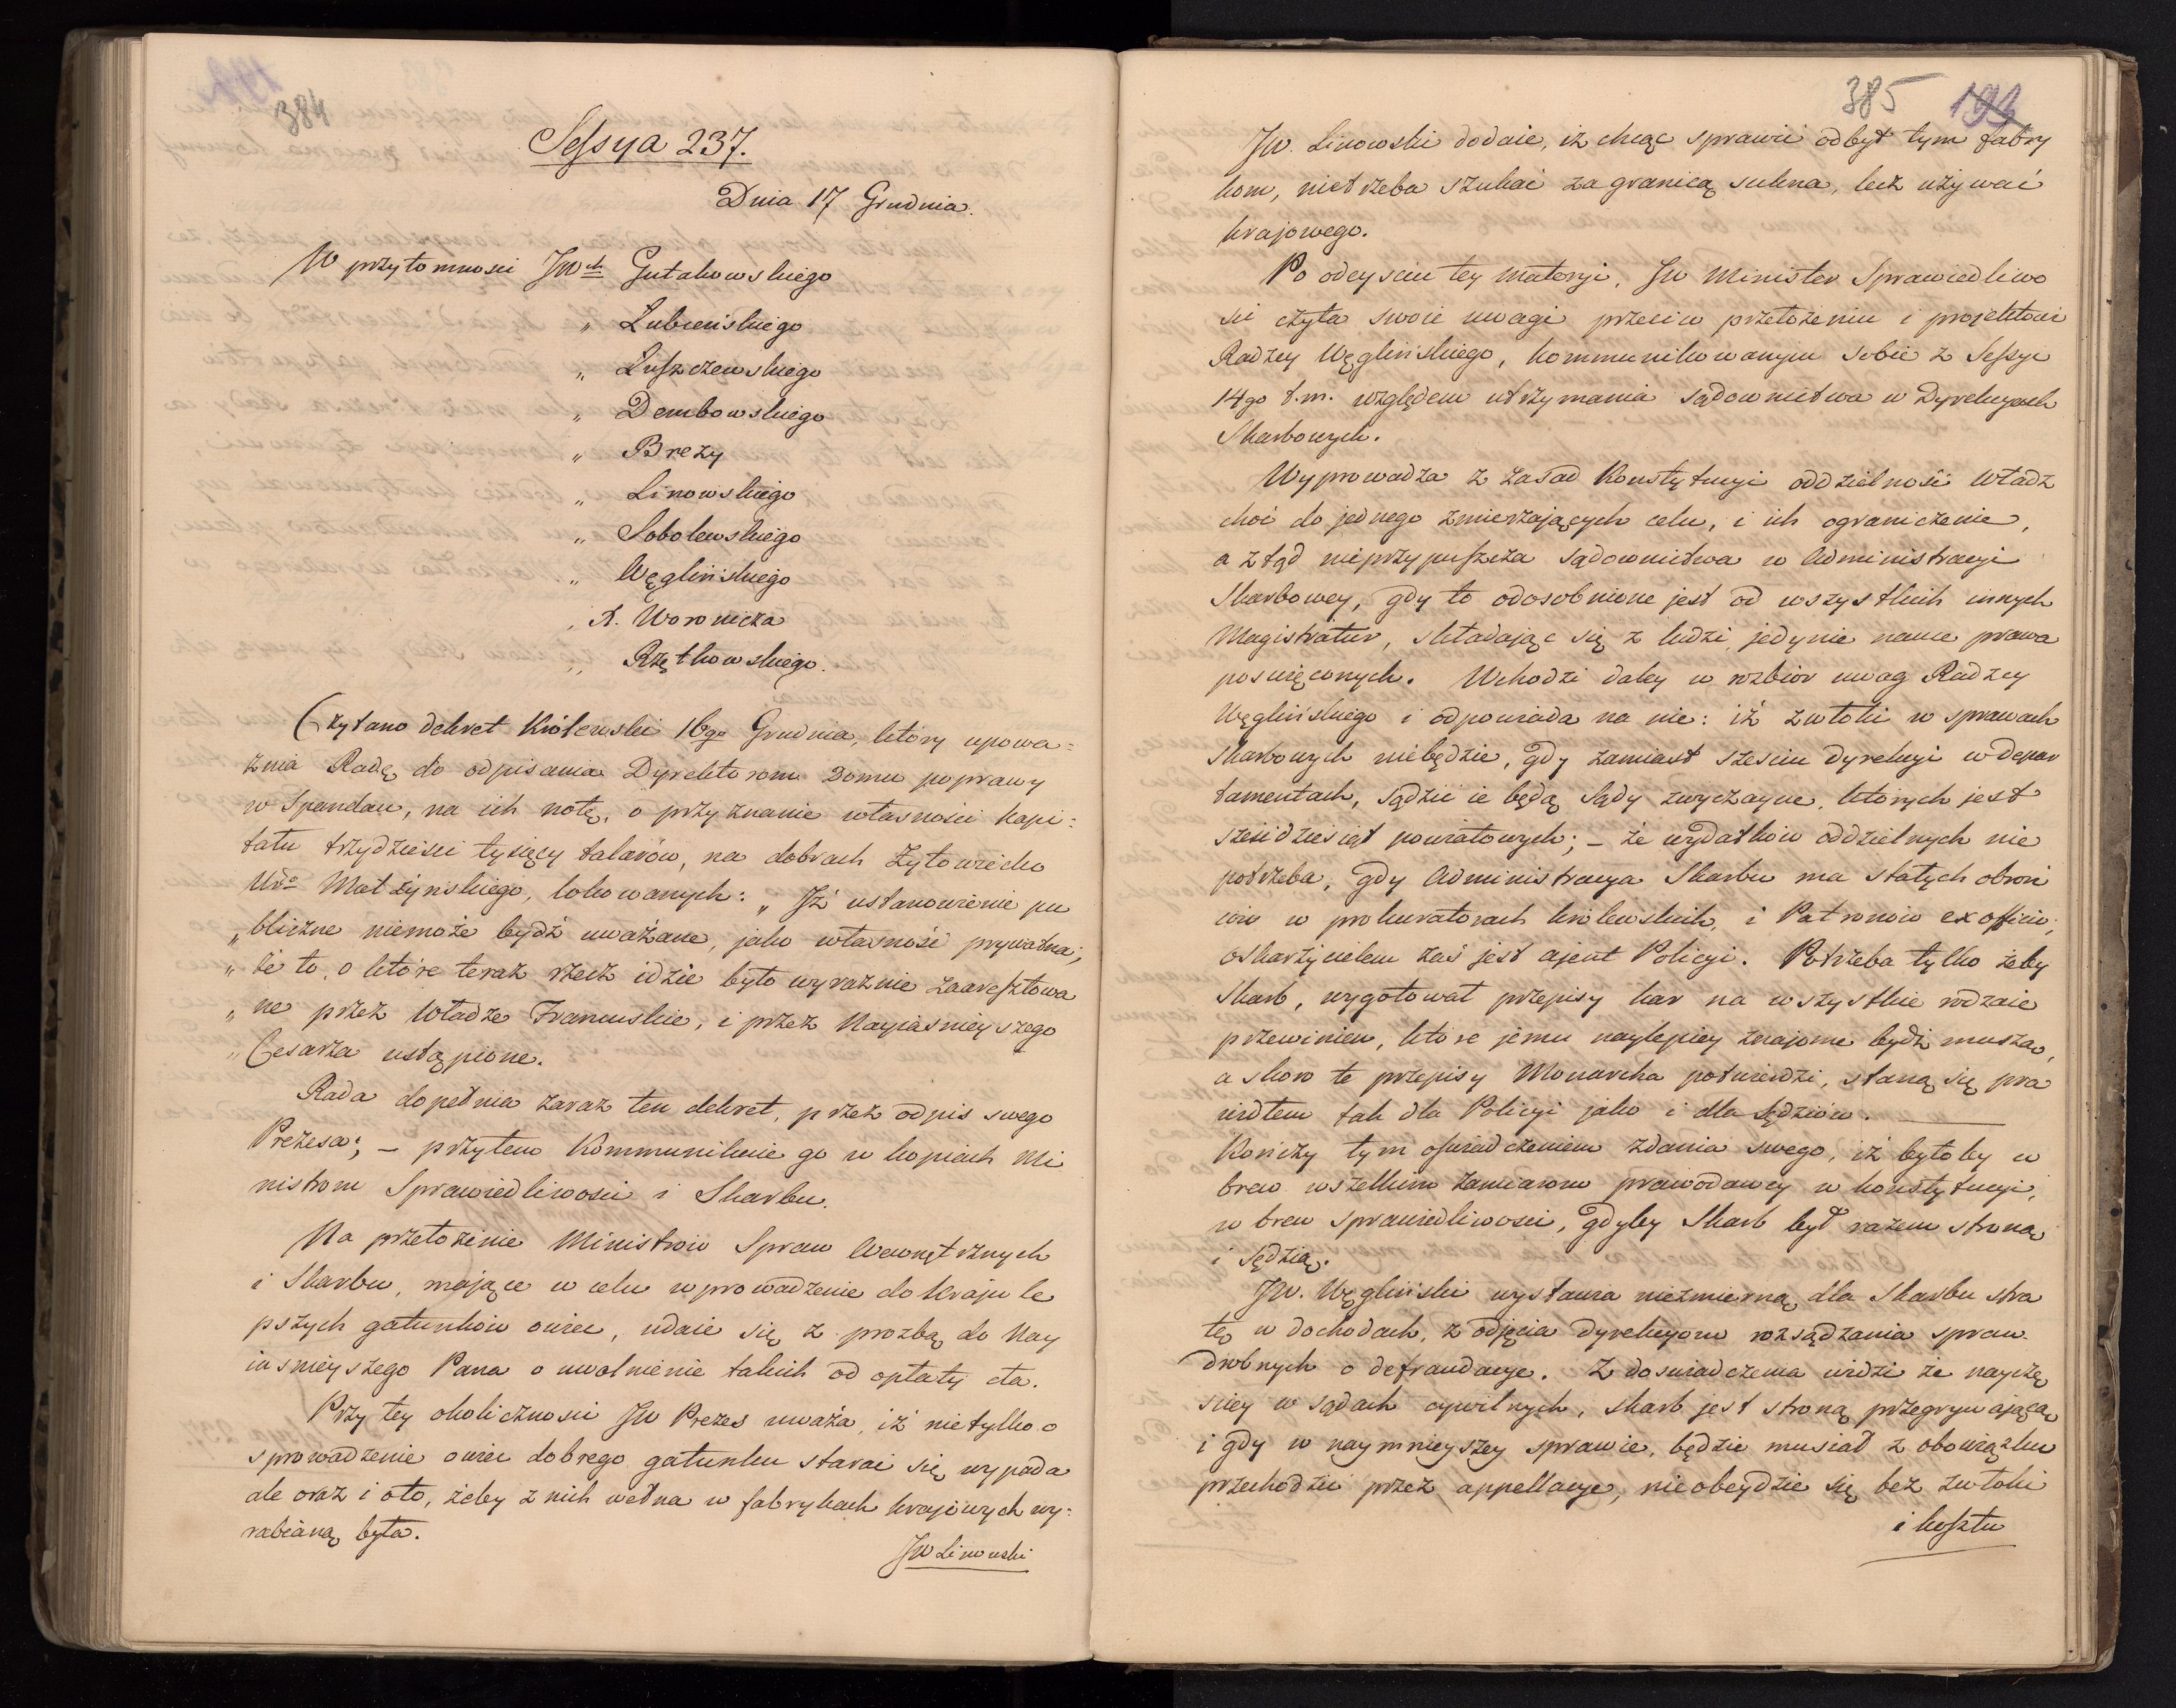 384
Sessya 237.
Dnia 17 Grudnia.
W przytomnosci JWch Gutakowskiego
„ Łubieńskiego
„ Łuszczewskiego
„ Dembowskiego
„ Brezy
„ Linowskiego
„ Sobolewskiego
„ Węglińskiego
„ X. Woronicza
„ Rzętkowskiego.
Czytano dekret Królewski 16go Grudnia, który upowa=
żnia Radę do odpisania Dyrektorom Domu poprawy
w Spandau, na ich notę, o przyznanie własności kapi=
tału trzydzieści tysięcy talarów, na dobrach Żytowiecko
Ur̃o Małżyńskiego, lokowanych: „ Iż ustanowienie pu
„ bliczne niemoże bydź uważane, jako własność prywatna;
„ że to, o które teraz rzecz idzie było wyraznie zaaresztowa
„ ne przez Władze Francuskie, i przez Nayiasnieyszego
„ Cesarza ustąpione.
Rada dopełnia zaraz ten dekret, przez odpis swego
Prezesa; – przytem Kommunikuie go w kopiach Mi
nistrom Sprawiedliwości i Skarbu.
Na przełożenie Ministrów Spraw Wewnętrznych
i Skarbu, mające w celu wprowadzenie do kraju le
pszych gatunków owiec, udaie się z prozbą do Nay
iasnieyszego Pana o uwolnienie takich od opłaty cła.
Przy tey okoliczności JW Prezes uważa, iż nietylko o
sprowadzenie owiec dobrego gatunku starać się wypada
ale oraz i oto, żeby z nich wełna w fabrykach krajowych wy=
rabianą była.
JW Linowski
385 193
JW. Linowski dodaie, iż chcąc sprawić odbyt tym fabry
kom, nietrzeba szukać zagranicą sukna, lecz używać
krajowego.
Po odeysciu tey materyi, JW Minister Sprawiedliwo
ści czyta swoie uwagi przeciw przełożeniu i projektowi
Radzcy Węglińskiego, kommunikowanym sobie z Sessyi
14go t.m. względem utrzymania sądownictwa w Dyrekcyach
Skarbowych.
Wyprowadza z zasad Konstytucyi oddzielność Władz
choć do jednego zmierzających celu, i ich ograniczenie,
a ztąd nieprzypuszcza sądownictwa w Administracyi
Skarbowey, gdy to odosobnione jest od wszystkich innych
Magistratur, składając się z ludzi, jedynie nauce prawa
poswięconych. Wchodzi daley w rozbior uwag Radzcy
Węglińskiego i odpowiada na nie: iż zwłoki w sprawach
skarbowych niebędzie, gdy zamiast szesciu dyrekcyi w depar
tamentach, sądzić ie będą Sądy zwyczayne, których jest
sześćdziesiąt powiatowych; – że wydatków oddzielnych nie
potrzeba, gdy Administracya Skarbu ma stałych obroń
ców w prokuratorach królewskich, i Patronów ex officio;
oskarżycielem zaś jest ajent Policyi. Potrzeba tylko żeby
Skarb, wygotował przepisy kar na wszystkie rodzaie
przewinien, które jemu naylepiey znajome bydź muszą,
a skoro te przepisy Monarcha potwierdzi, staną się pra
widłem tak dla Policyi jako i dla Sędziów.
Kończy tym oswiadczeniem zdania swego, iż byłoby w
brew wszelkim zamiarom prawodawcy w konstytucyi,
w brew sprawiedliwości, gdyby Skarb był razem stroną
i Sędzią.
JW. Węgliński wystawia niezmierną dla Skarbu stra
tę w dochodach, z odjęcia dyrekcyom rozsądzania spraw
drobnych o defraudacye. Z doswiadczenia widzi że nayczę
sciey w sądach cywilnych, skarb jest stroną przegrywającą,
i gdy w naymnieyszey sprawie, będzie musiał z obowiązku
przechodzić przez appellacye, nieobeydzie się bez zwłoki
i kosztu